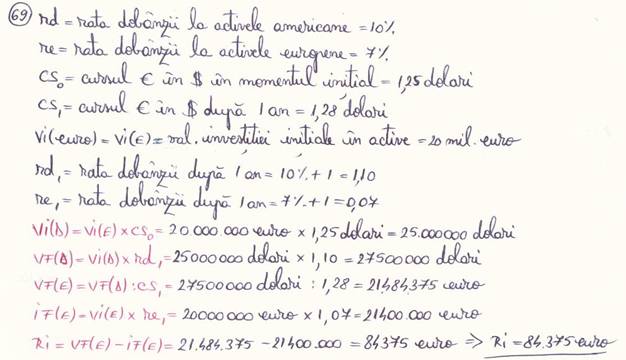 69 rd = rata dobânzii la activele americane = 10%.
re = rata dobânzii la activele europene = 7%.
CS₀ = cursul € în $ în momentul inițial = 1,25 dolari
CS₁ = cursul € în $ după 1 an = 1,28 dolari
Vi(euro) = Vi(E) = val. investiției inițiale în active = 20 mil. euro
rd₁ = rata dobânzii după 1 an = 10% + 1 = 1,10
re₁ = rata dobânzii după 1 an = 7% + 1 = 0,07
Vi(Δ) = Vi(E) × CS₀ = 20.000.000 euro × 1,25 dolari = 25.000000 dolari
VF(Δ) = Vi(Δ) × rd₁ = 25000000 dolari × 1,10 = 27500000 dolari
VF(E) = VF(Δ) : CS₁ = 27500000 dolari : 1,28 = 21484.375 euro
iF(E) = Vi(E) × re₁ = 20000000 euro × 1,07 = 21400.000 euro
Ri = VF(E) - iF(E) = 21.484.375 - 21400.000 = 84375 euro => Ri = 84.375 euro